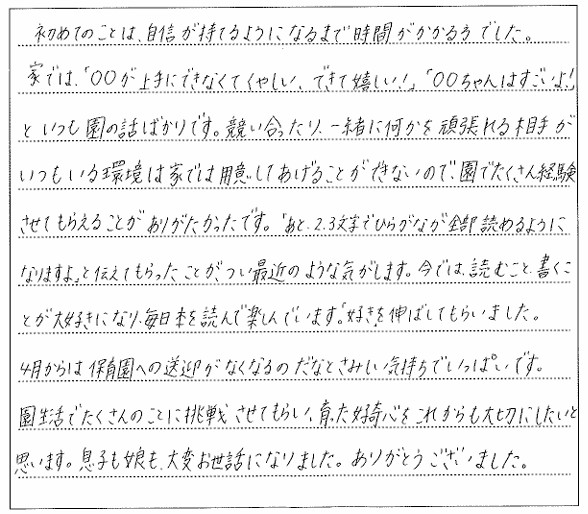 初めてのことは、自信が持てるようになるまで時間がかかる方でした。
家では、「〇〇が上手にできなくてくやしい、できて嬉しい！」「〇〇ちゃんはすごいよ！」
といつも園の話ばかりです。競い合ったり、一緒に何かを頑張れる相手が
いつもいる環境は家では用意してあげることができないので、園でたくさん経験
させてもらえることがありがたかったです。「あと、2.3文字でひらがなが全部読めるように
なりますよ」と伝えてもらったことが、つい最近のような気がします。今では、読むこと、書くこ
とが大好きになり、毎日本を読んで楽しんでいます。「好き」を伸ばしてもらいました。
4月からは保育園への送迎がなくなるのだなとさみしい気持ちでいっぱいです。
園生活でたくさんのことに挑戦させてもらい、育った好奇心をこれからも大切にしたいと
思います。息子も娘も、大変お世話になりました。ありがとうございました。